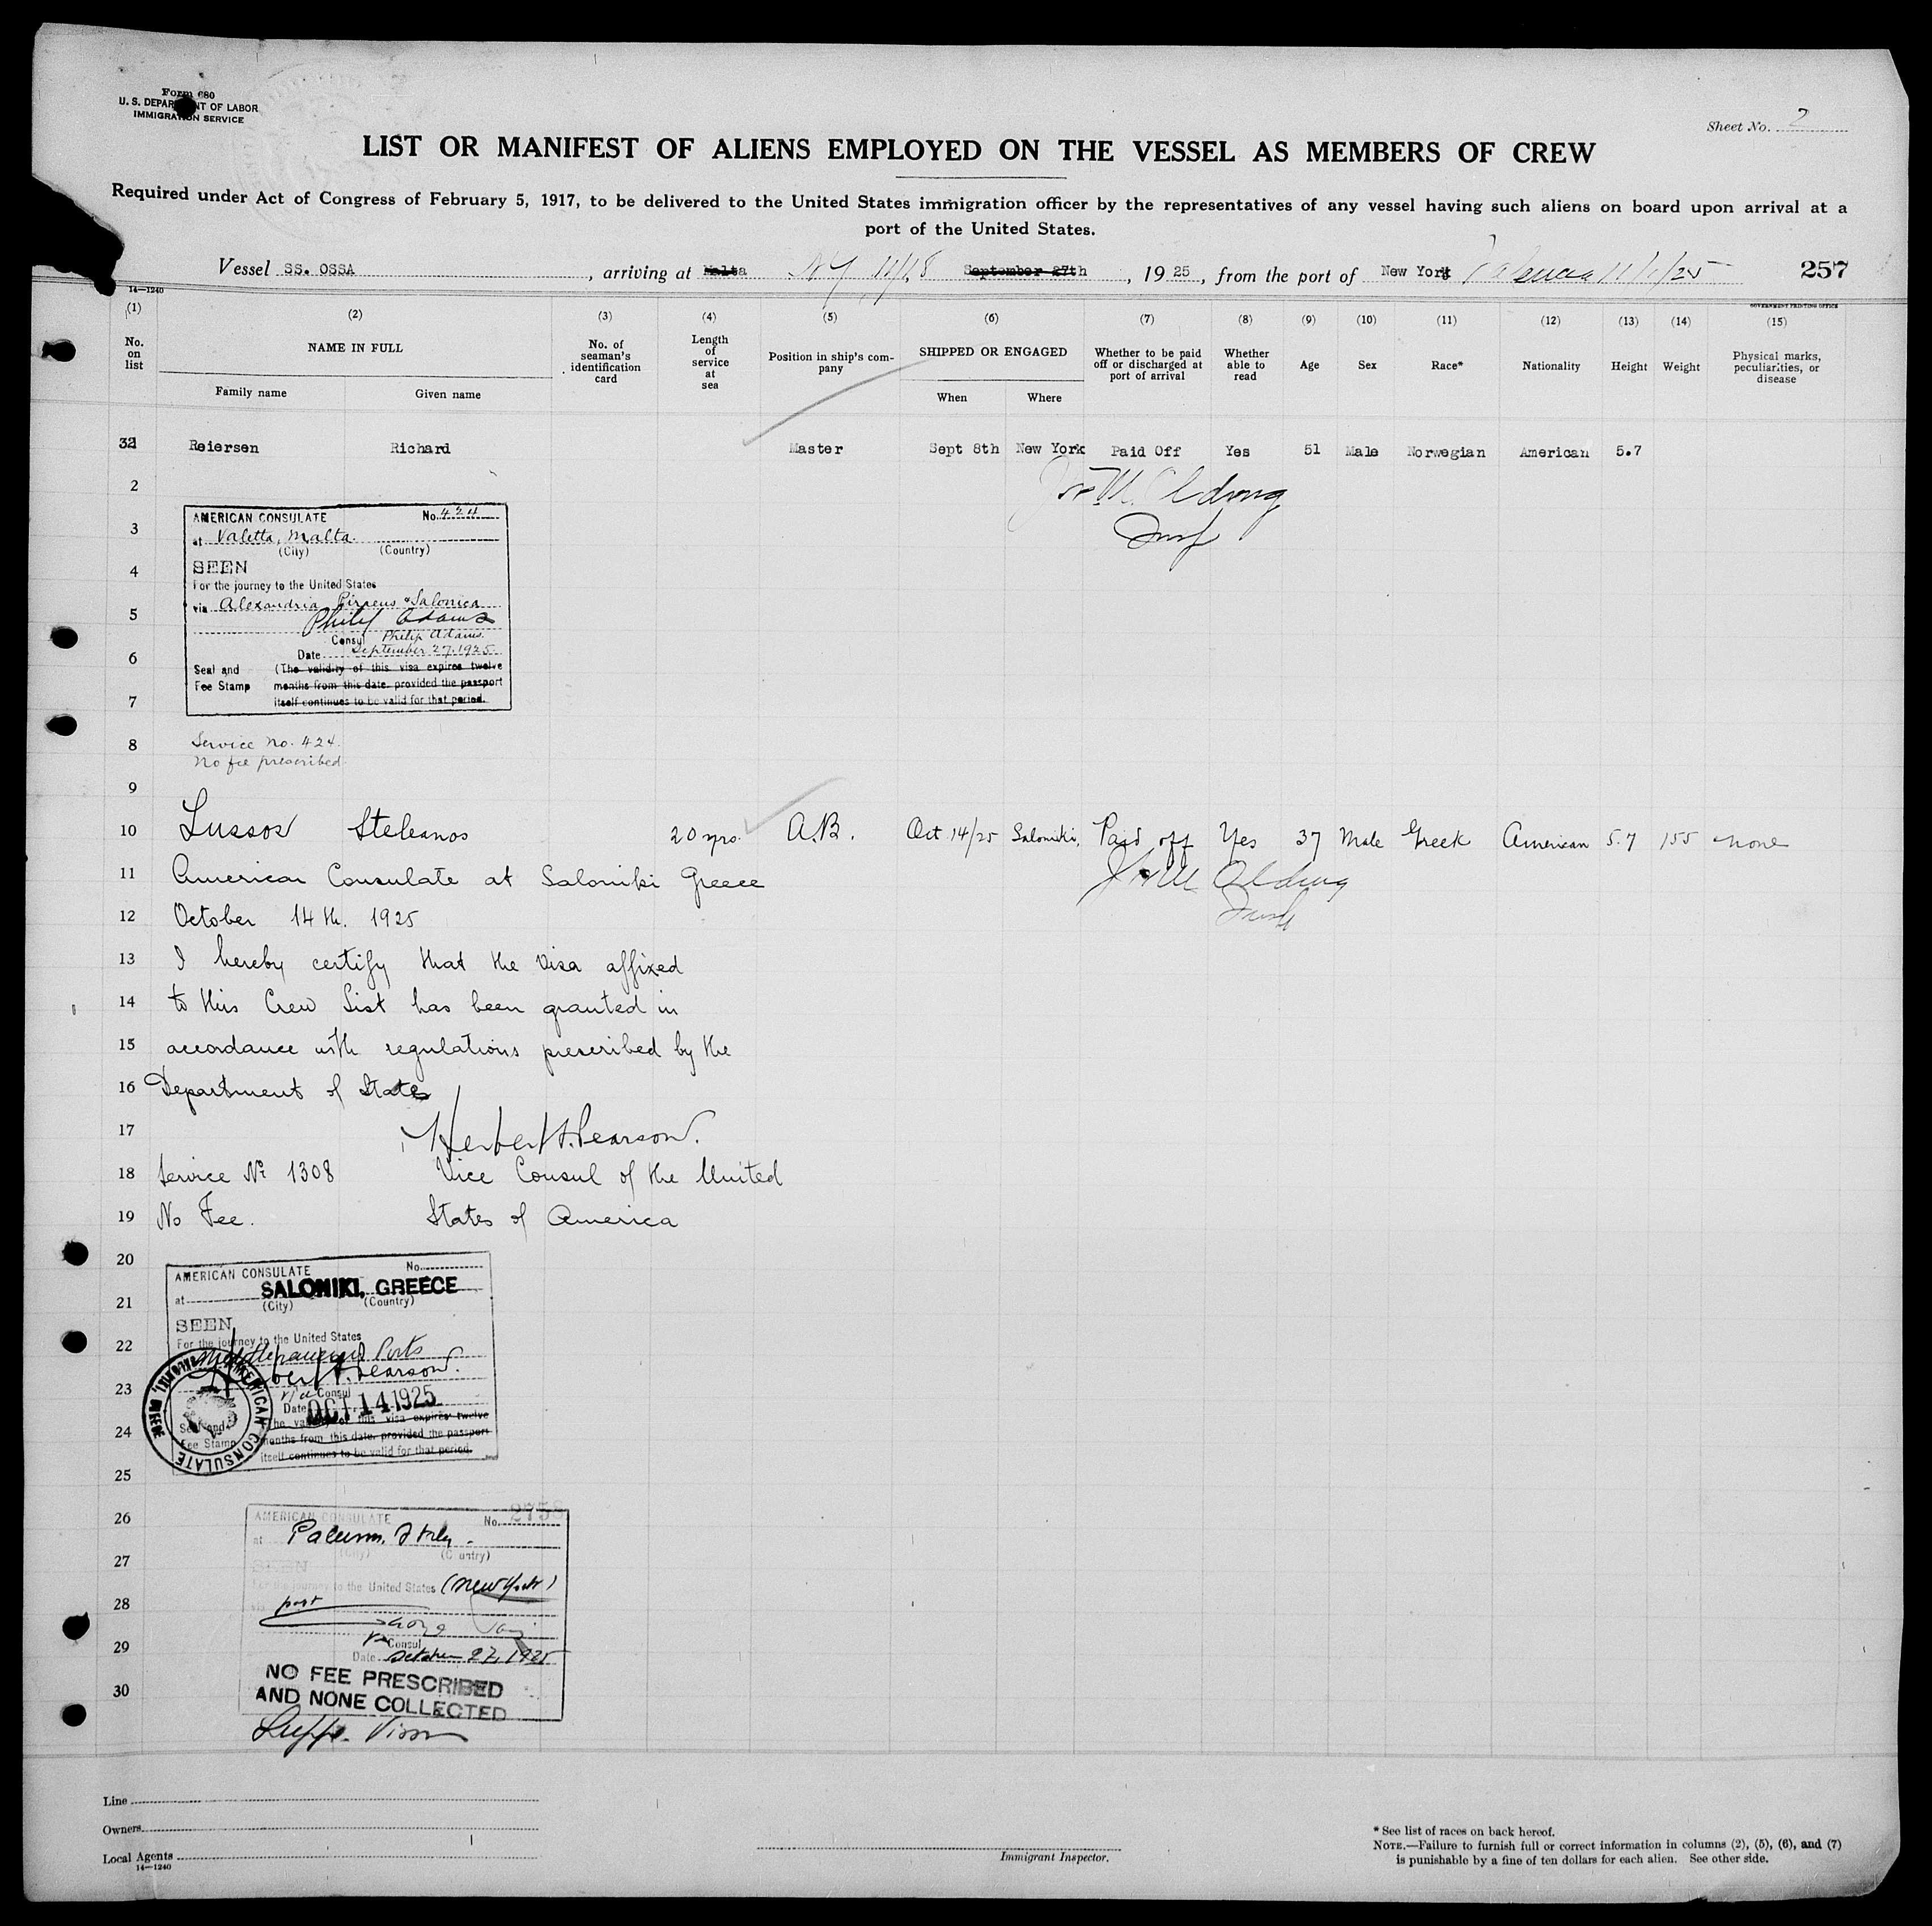 Form 680
U. S. DEPARTMENT OF LABOR
IMMIGRATION SERVICE
Sheet No. 2
LIST OR MANIFEST OF ALIENS EMPLOYED ON THE VESSEL AS MEMBERS OF CREW
Required under Act of Congress of February 5, 1917, to be delivered to the United States immigration officer by the representatives of any vessel having such aliens on board upon arrival at a
port of the United States.
Vessel SS. OSSA, arriving at Malta N.Y. 11/18 September 27th, 1925, from the port of New York 257
14—1240
GOVERNMENT PRINTING OFFICE
(1) (2) (3) (4) (5) (6) (7) (8) (9) (10) (11) (12) (13) (14) (15)
No. on list NAME IN FULL No. of seaman's identification card Length of service at sea Position in ship's company SHIPPED OR ENGAGED Whether to be paid off or discharged at port of arrival Whether able to read Age Sex Race* Nationality Height Weight Physical marks, peculiarities, or disease
Family name Given name When Where
32 Reiersen Richard Master Sept 8th New York Paid Off Yes 51 Male Norwegian American 5.7
2
3
AMERICAN CONSULATE No. 424
at Valetta, Malta.
(City) (Country)
4
SEEN
For the journey to the United States
via Alexandria Pirreus & Salonica
5
Philip Adams
Consul Philip Adams.
6
Date September 27, 1925.
Seal and (The validity of this visa expires twelve
Fee Stamp months from this date. provided the passport
7
itself continues to be valid for that period.
8
Service no. 424.
No fee prescribed
9
10 Lussos Steleanos 20 yrs. A.B. Oct 14/25 Saloniki, Paid off Yes 37 Male Greek American 5.7 155 none
11 American Consulate at Saloniki Greece
12 October 14th. 1925
13 I hereby certify that the Visa affixed
14 to this Crew List has been granted in
15 accordance with regulations prescribed by the
16 Department of State
17 Herbert F. Pearson.
18 Service No 1308 Vice Consul of the United
19 No Fee. States of America
20
AMERICAN CONSULATE No.
at SALONIKI, GREECE
21
(City) (Country)
SEEN
22
For the journey to the United States
Ports
Herbert F. Pearson.
23
Consul
Date OCT 14 1925
24
Seal and (The validity of this visa expires twelve
Fee Stamp months from this date. provided the passport
itself continues to be valid for that period.
AMERICAN CONSULATE
25
26
AMERICAN CONSULATE No. 2758
at Palermo, Italy.
27
(City) (Country)
SEEN
For the journey to the United States (New York)
28
29
Consul
Date October 27, 1925
30
NO FEE PRESCRIBED
AND NONE COLLECTED
Line
Owners
Local Agents
14—1240
Immigrant Inspector.
* See list of races on back hereof.
NOTE.—Failure to furnish full or correct information in columns (2), (5), (6), and (7)
is punishable by a fine of ten dollars for each alien. See other side.